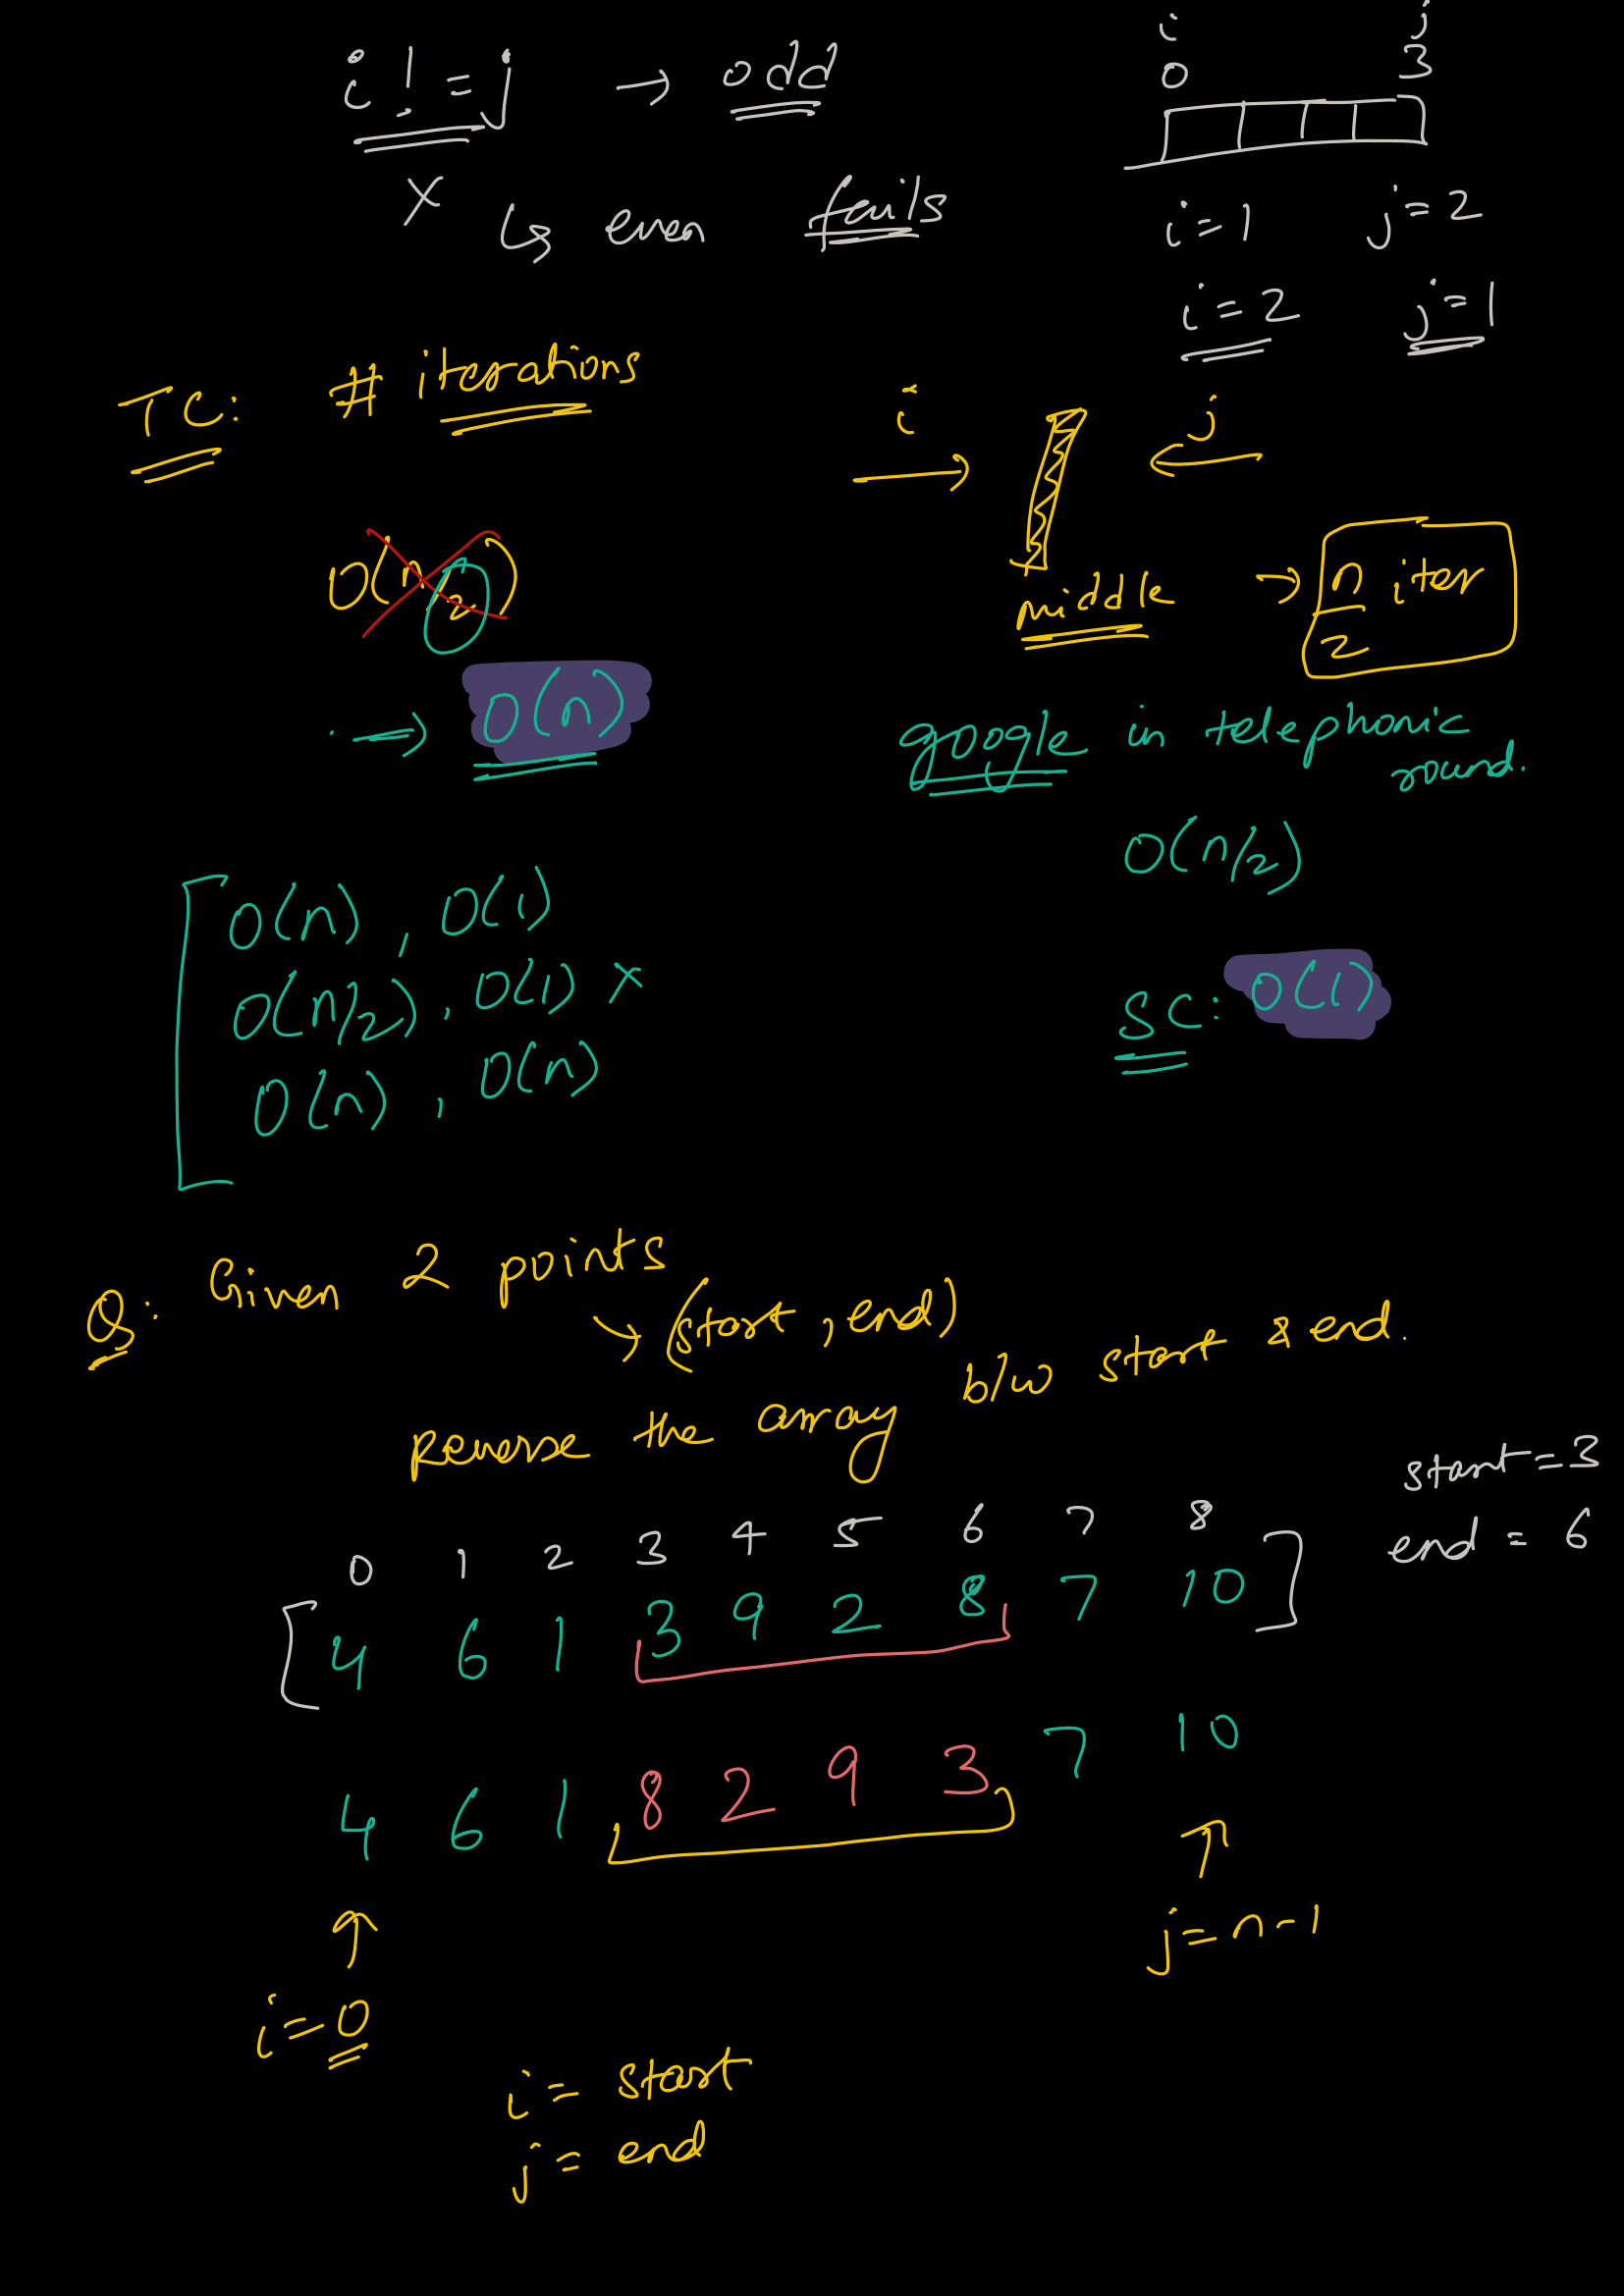 i != j → odd
i j
0 3
X ↳ even fails
i=1 j=2
i=2 j=1
TC: # iterations
i j
O(n/2)
middle → n/2 iter
⇒ O(n)
google in telephonic
round.
O(n/2)
O(n), O(1)
O(n/2), O(1) X
O(n), O(n)
SC: O(1)
Q: Given 2 points
↳ (start, end)
Reverse the array b/w start & end.
start=3
end = 6
0 1 2 3 4 5 6 7 8
[4 6 1 3 9 2 8 7 10]
4 6 1 8 2 9 3 7 10
j=n-1
i=0
i= start
j= end